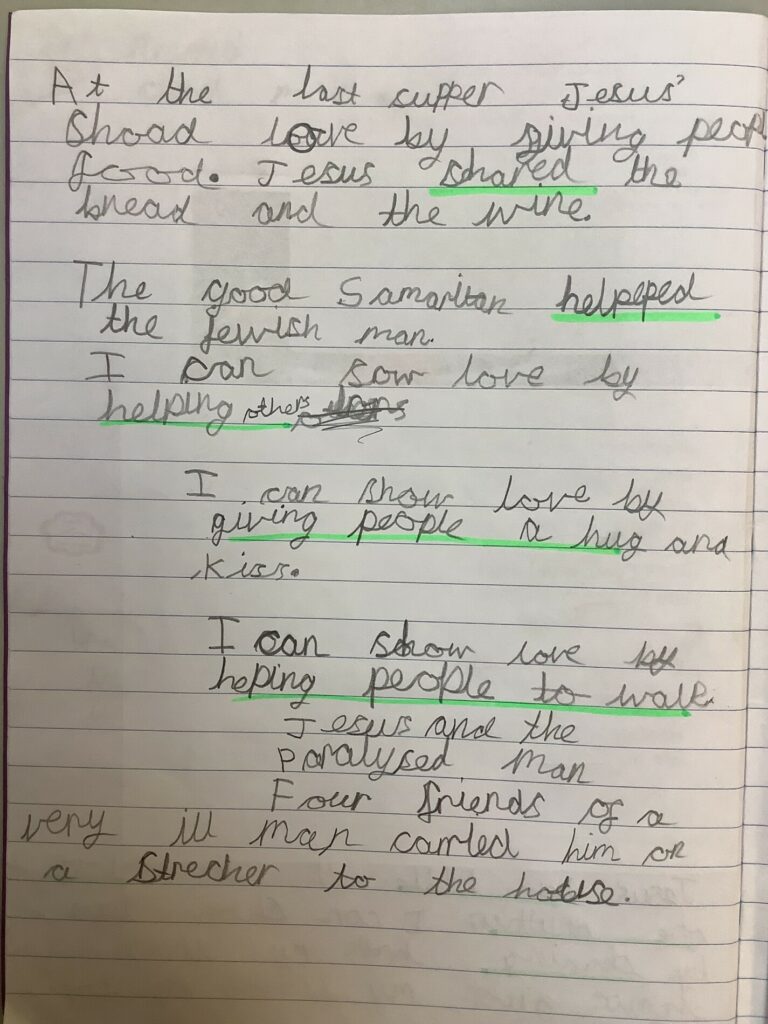 At the last supper Jesus'
Shoad love by giving peop
food. Jesus shared the
bread and the wine.
The good Samaritan helpeped
the Jewish man.
I can sow love by
helping others
I can show love by
giving people a hug and
kiss.
I can show love by
heping people to walk.
Jesus and the
Paralysed Man
Four friends of a
very ill man carried him on
a Strecher to the house.